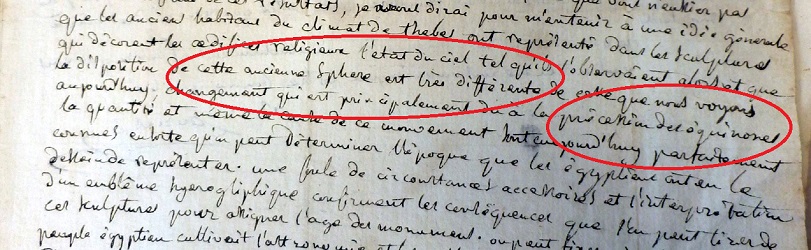 résultats, je me dirai pour m'en tenir à une idée générale
que les anciens habitans du climat de thebes ont représenté dans les sculptures
qui décorent les ædifices religieux l'état du ciel tel qu'ils l'observaient alors et que
la disposition de cette ancienne Sphere est très différente de celle que nous voyons
aujourd'huy. changement qui est principalement du à la précession des équinoxes
la quantité et même la cause de ce mouvement sont aujourd'huy parfaitement
connues en sorte qu'on peut déterminer l'époque que les égyptiens ont eu le
dessein de représenter. une foule de circonstances accessoires et l'interprétation
d'un emblême hyerogliphique confirment les conséquences que l'on peut tirer de
ces sculptures pour assigner l'age des monumens. on peut
peuple égyptien cultivoit l'astronomie